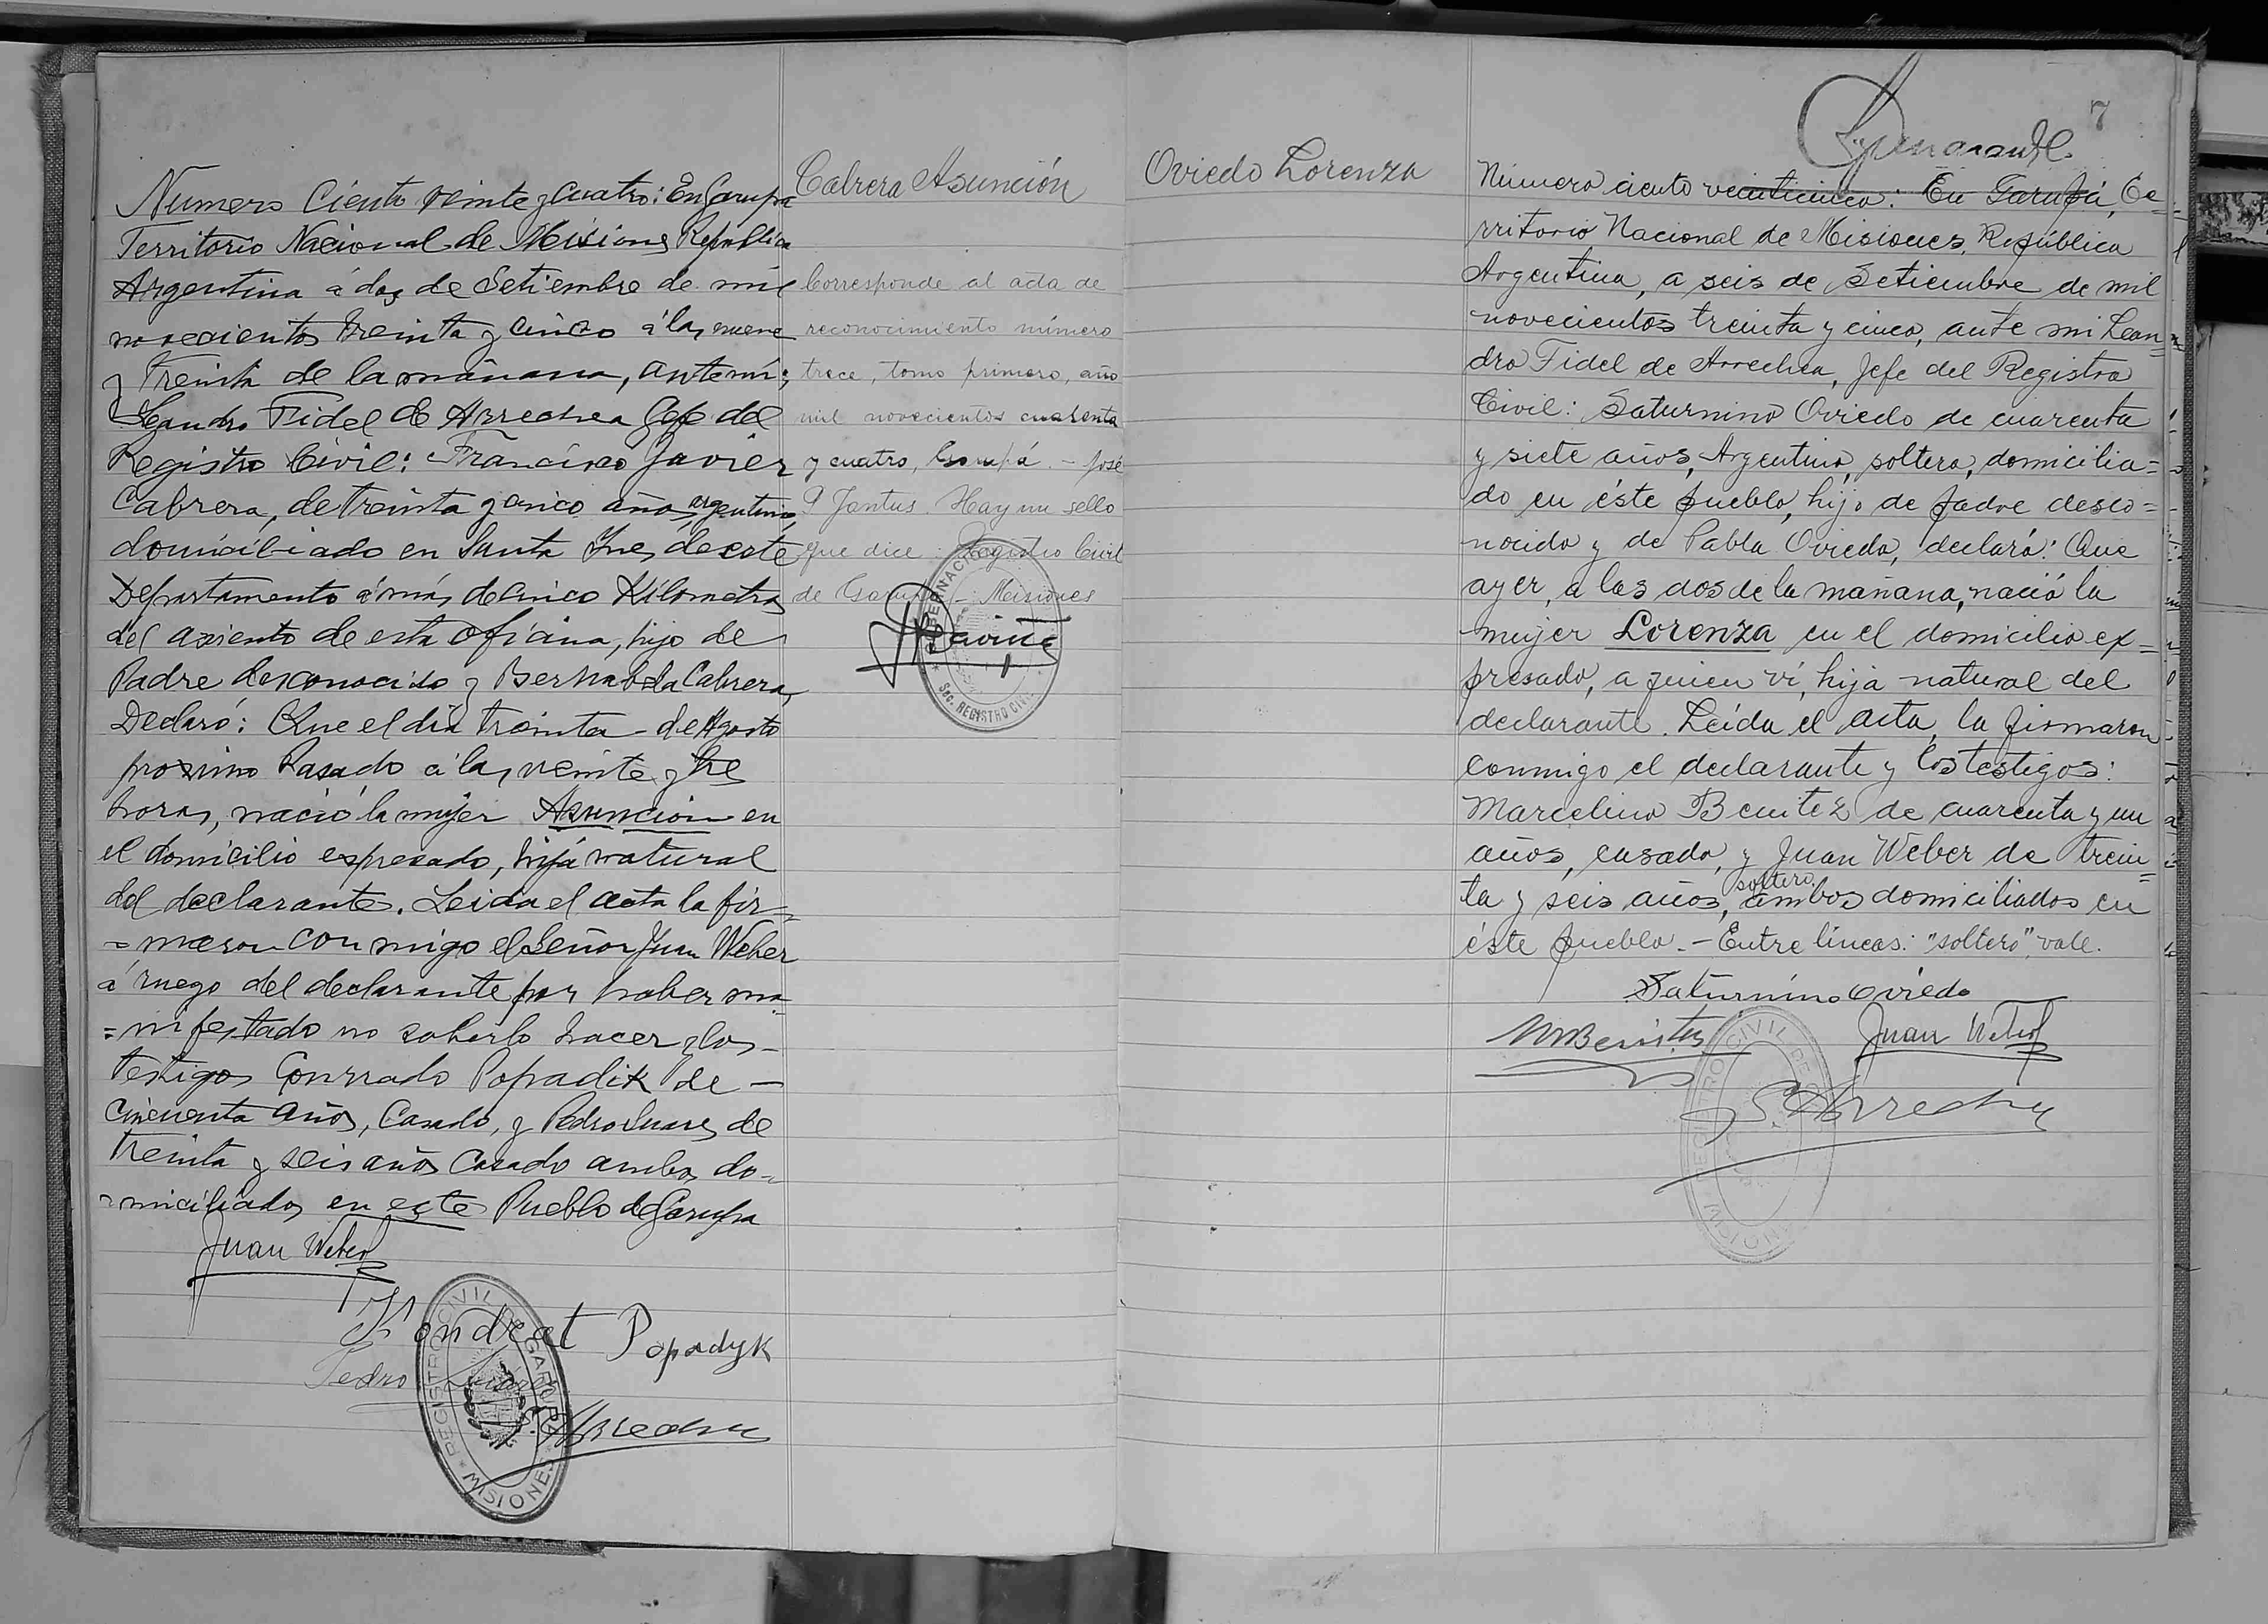 Numero Ciento veinte y cuatro: En Garupa
Territorio Nacional de Misiones Republica
Argentina á dos de Setiembre de mil
novecientos treinta y cinco á las nueve
y treinta de la mañana, ante mi;
Leandro Fidel de Arrechea Gefe del
Registro Civil: Francisco Javier
Cabrera, de treinta y cinco años, argentino,
domiciliado en Santa Ines, de este
Departamento á más de cinco Kilometros
del asiento de esta oficina, hijo de
Padre desconocido y Bernabela Cabrera,
Declaró: Que el día treinta de Agosto
proximo Pasado á las veinte y tres
horas, nació la mujer Asuncion en
el domicilio espresado, hija natural
del declarante. Leida el acta la fir=
=maron conmigo el Señor Juan Weber
á ruego del declarante por haber ma=
=nifestado no saberlo hacer y los
testigos Conrrado Popadik de
Cincuenta años, Casado, y Pedro Suares de
treinta y seis años Casado ambos do=
=miciliados en este Pueblo de Garupa
Juan Weber
Kondrat Popadyk
Pedro Suárez
Arrechea
REGISTRO CIVIL DE GARUPA
MISIONES
Cabrera Asunción
Corresponde al acta de
reconocimiento número
trece, tomo primero, año
mil novecientos cuarenta
y cuatro, Garupá. - José
Hay un sello
que dice: Registro Civil
de Garupá - Misiones
SEC. REGISTRO CIVIL
Oviedo Lorenza
7
Número ciento veinticinco: En Garupá, Te=
rritorio Nacional de Misiones, República
Argentina, a seis de Setiembre de mil
novecientos treinta y cinco, ante mi Lean=
dro Fidel de Arrechea, Jefe del Registro
Civil: Saturnino Oviedo de cuarenta
y siete años, Argentino, soltero, domicilia=
do en éste pueblo, hijo de padre desco=
nocido y de Pabla Oviedo, declaró: Que
ayer, a las dos de la mañana, nació la
mujer Lorenza en el domicilio ex=
presado, a quien ví, hija natural del
declarante. Leída el acta, la firmaron
conmigo el declarante y los testigos:
Marcelino Benitez de cuarenta y un
años, casado, y Juan Weber de trein=
ta y seis años, soltero, ambos domiciliados en
éste pueblo. - Entre líneas: "soltero", vale.
Saturnino Oviedo
M Benitez
Juan Weber
Arrechea
REGISTRO CIVIL DE
MISIONES